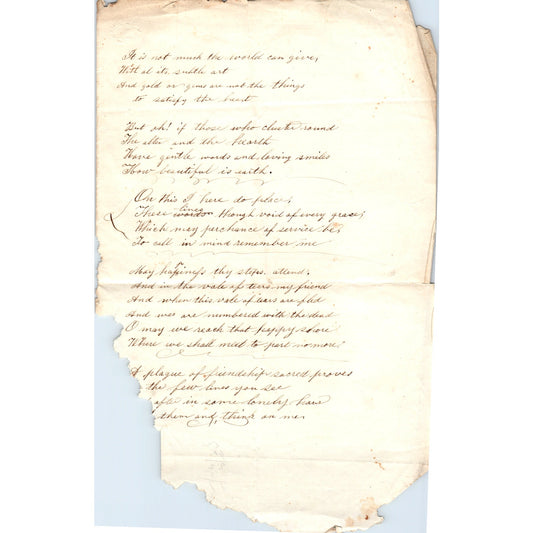 It is not much the world can give,
With al its subtle art
And gold or gems are not the things
to satisfy the heart
But oh! if those who cluster round
The alter and the hearth
Have gentle words and loving smiles
How beautiful is earth.
On this I here do place,
These lines though void of every grace;
Which may perchance of service be,
To call in mind remember me
May happiness thy steps attend,
And in the vale of tears my friend
And when this vale of tears are fled
And are numbered with the dead
O may we reach that happy shore
Where we shall meet to part no more.
A plague of friendship sacred proves
the few lines you see
in some lonely hour
them and think on me.